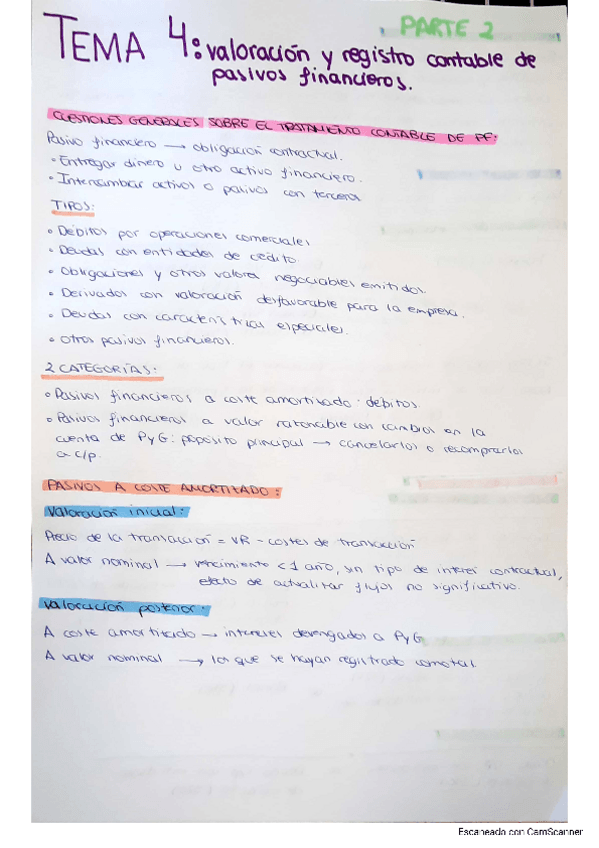 PARTE 2
TEMA 4: valoración y registro contable de
pasivos financieros.
CUESTIONES GENERALES SOBRE EL TRATAMIENTO CONTABLE DE PF:
Pasivo financiero → obligación contractual.
• Entregar dinero u otro activo financiero.
• Intercambiar activos o pasivos con terceros
TIPOS:
• Débitos por operaciones comerciales
• Deudas con entidades de crédito.
• Obligaciones y otros valores negociables emitidos.
• Derivados con valoración desfavorable para la empresa.
• Deudas con características especiales.
• Otros pasivos financieros.
2 CATEGORÍAS:
• Pasivos financieros a coste amortizado: débitos.
• Pasivos financieros a valor razonable con cambios en la
cuenta de PyG: propósito principal → cancelarlos o recomprarlos
a c/p.
PASIVOS A COSTE AMORTIZADO:
Valoración inicial:
Precio de la transacción = VR - costes de transacción
A valor nominal → vencimiento < 1 año, sin tipo de interés contractual,
efecto de actualizar flujos no significativo.
Valoración posterior:
A coste amortizado → intereses devengados a PyG
A valor nominal → los que se hayan registrado como tal.
Escaneado con CamScanner